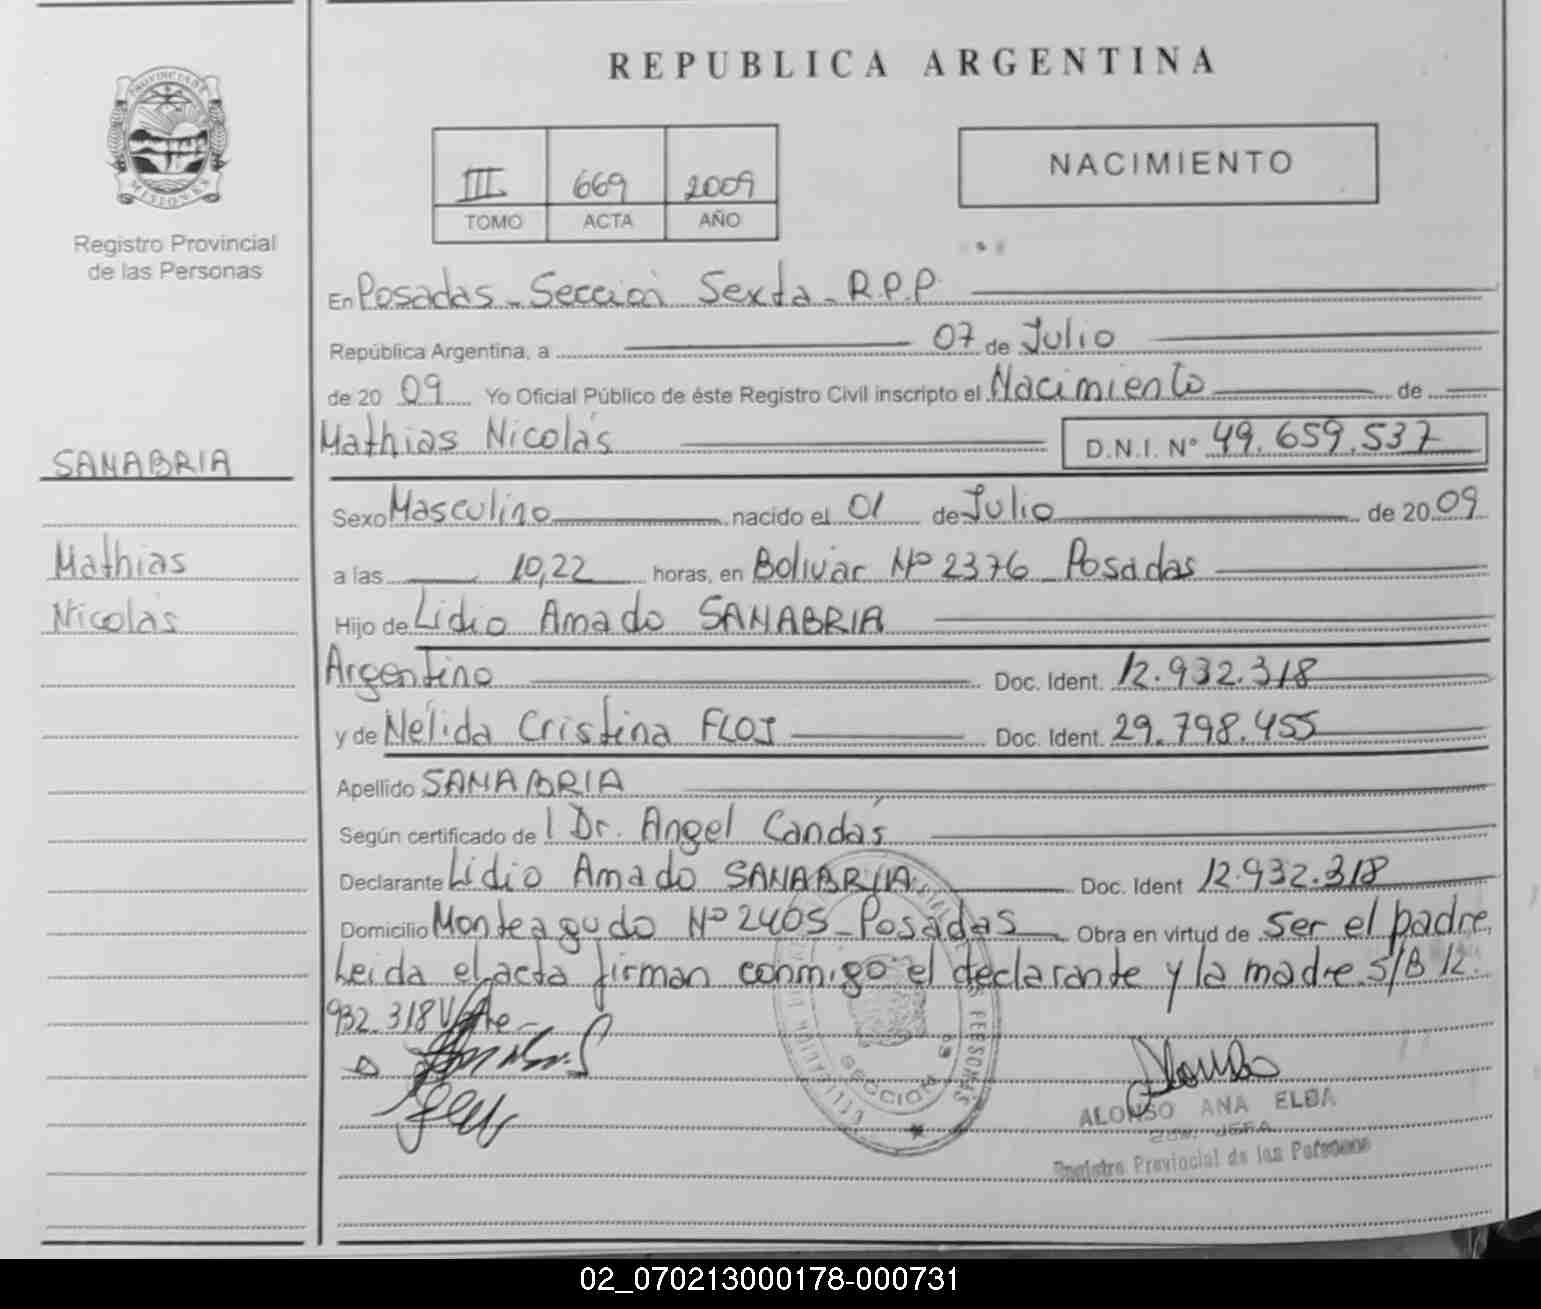 REPUBLICA ARGENTINA
PROVINCIA DE
MISIONES
Registro Provincial
de las Personas
III 669 2009
TOMO ACTA AÑO
NACIMIENTO
En Posadas - Sección Sexta - R.P.P.
República Argentina, a 07 de Julio
de 20 09 Yo Oficial Público de éste Registro Civil inscripto el Nacimiento de
SANABRIA
Mathias Nicolás D.N.I. N° 49.659.537
Sexo Masculino nacido el 01 de Julio de 20 09
Mathias
a las 10,22 horas, en Bolivar N° 2376 - Posadas
Nicolás
Hijo de Lidio Amado SANABRIA
Argentino Doc. Ident. 12.932.318
y de Nélida Cristina FLOS Doc. Ident. 29.798.455
Apellido SANABRIA
Según certificado de l Dr. Angel Candás
Declarante Lidio Amado SANABRIA Doc. Ident 12.932.318
Domicilio Monteagudo N° 2405 - Posadas Obra en virtud de ser el padre,
Leída el acta firman conmigo el declarante y la madre. S/B 12.
932.318 Vale -
PERSONAS
SECCION 6a
ALONSO ANA ELBA
JEFA
Registro Provincial de las Personas
02_070213000178-000731